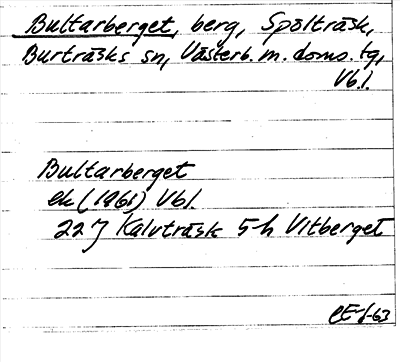 Bultarberget, berg, Spölträsk,
Burträsks sn, Västerb. m. doms. tg,
Vbl.
Bultarberget
ek (1961) Vbl.
22J Kalvträsk 5h Vitberget